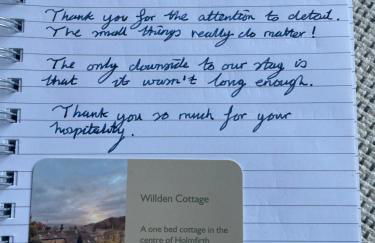 Thank you for the attention to detail.
The small things really do matter!
The only downside to our stay is
that it wasn't long enough.
Thank you so much for your
hospitality.
Willden Cottage
A one bed cottage in the
centre of Holmfirth